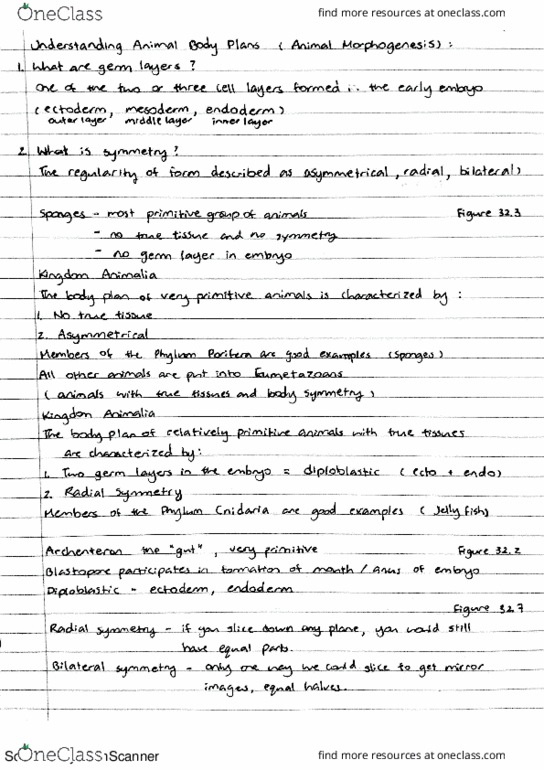 OneClass find more resources at oneclass.com
Understanding Animal Body Plans (Animal Morphogenesis):
1. What are germ layers?
One of the two or three cell layers formed in the early embryo
(ectoderm, mesoderm, endoderm)
outer layer middle layer inner layer
2. What is symmetry?
The regularity of form described as asymmetrical, radial, bilateral)
Sponges - most primitive group of animals Figure 32.3
- no true tissue and no symmetry
- no germ layer in embryo
Kingdom Animalia
The body plan of very primitive animals is characterized by:
1. No true tissue
2. Asymmetrical
Members of the Phylum Porifera are good examples (sponges)
All other animals are put into Eumetazoans
(animals with true tissues and body symmetry)
Kingdom Animalia
The body plan of relatively primitive animals with true tissues
are characterized by:
1. Two germ layers in the embryo = diploblastic (ecto + endo)
2. Radial Symmetry
Members of the Phylum Cnidaria are good examples (Jelly fish)
Archenteron the "gut", very primitive Figure 32.2
Blastopore participates in formation of mouth / anus of embryo
Diploblastic - ectoderm, endoderm
Figure 32.7
Radial symmetry - if you slice down any plane, you would still
have equal parts.
Bilateral symmetry - only one way we could slice to get mirror
images, equal halves.
OneClass Scanner find more resources at oneclass.com